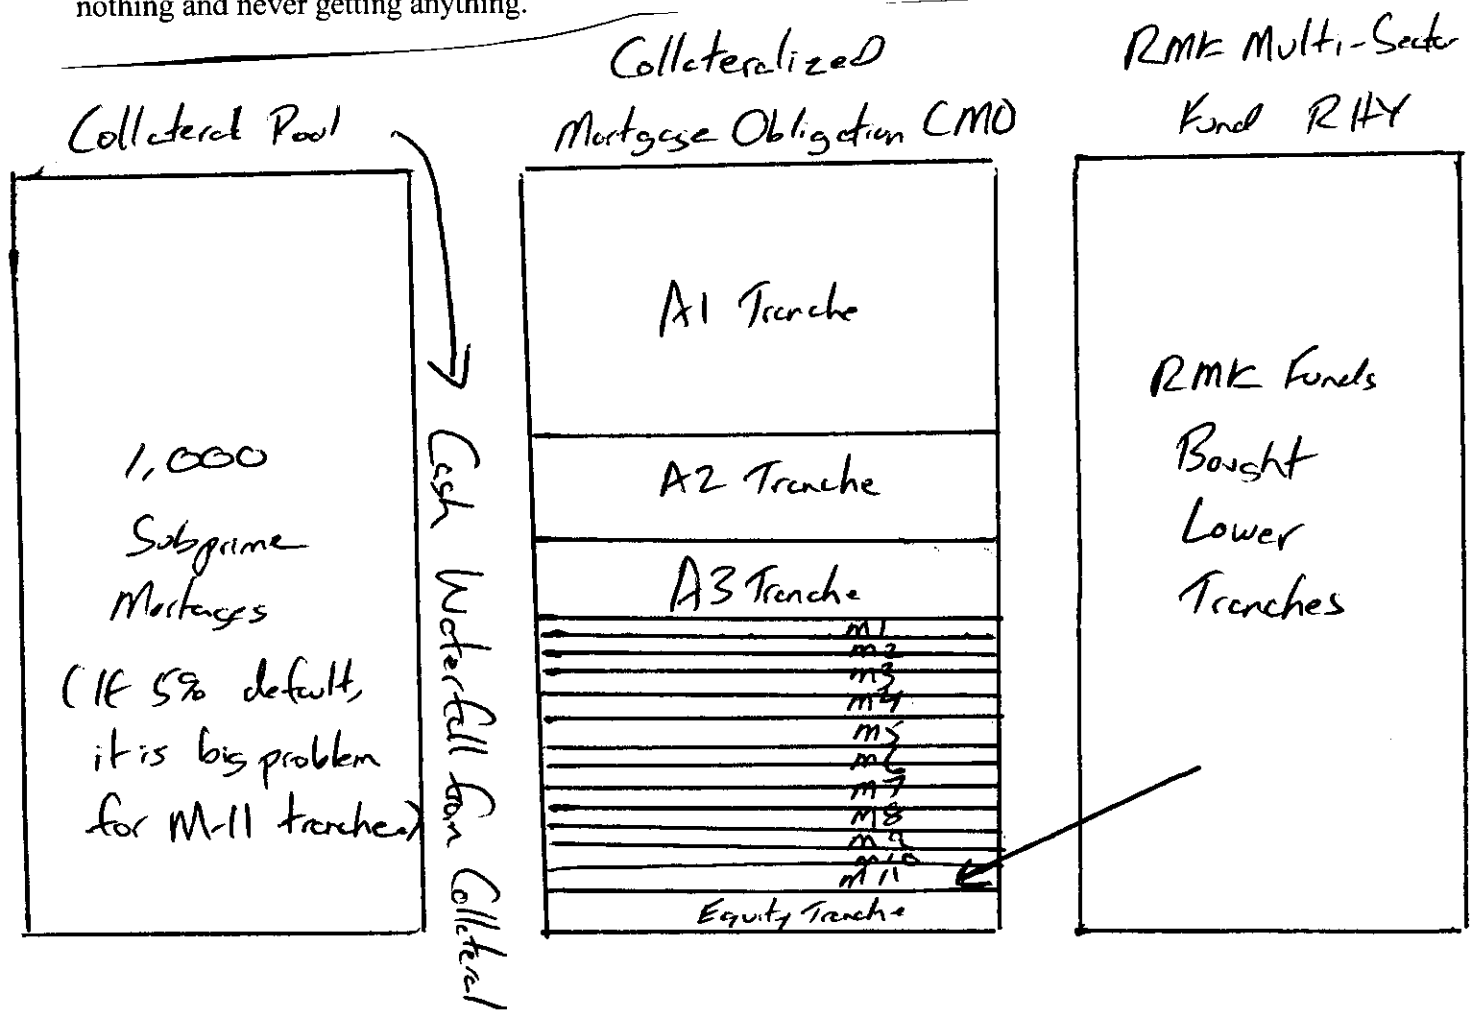 nothing and never getting anything.
Collateral Pool
1,000
Subprime
Mortages
(If 5% default,
it is big problem
for M-11 tranches)
Cash Waterfall from Collateral
Collateralized
Mortgage Obligation CMO
A1 Tranche
A2 Tranche
A3 Tranche
M1
M2
M3
M4
M5
M6
M7
M8
M9
M10
M11
Equity Tranche
RMK Multi-Sector
Fund RHY
RMK Funds
Bought
Lower
Tranches